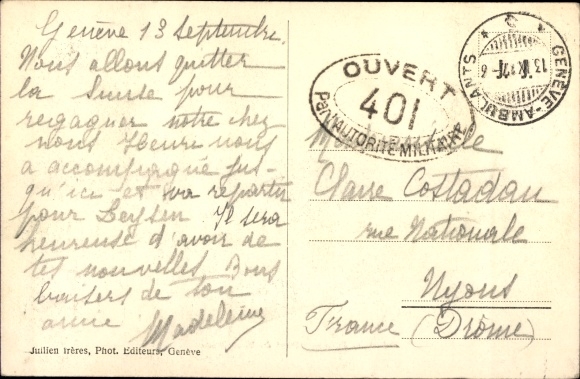 Genève 13 Septembre.
Nous allons quitter
la Suisse pour
regagner notre chez
nous Henri nous
a accompagné jus-
qu'ici et va repartir
pour Leysin Il sera
heureuse d'avoir de
tes nouvelles Bons
baisers de ton
amie Madeleine
Julien frères, Phot. Editeurs, Genève
OUVERT
401
PAR L'AUTORITÉ MILITAIRE
GENÈVE-AMBULANTS
13 IX 17
Claire Costadau
rue Nationale
Nyons
France (Drôme)